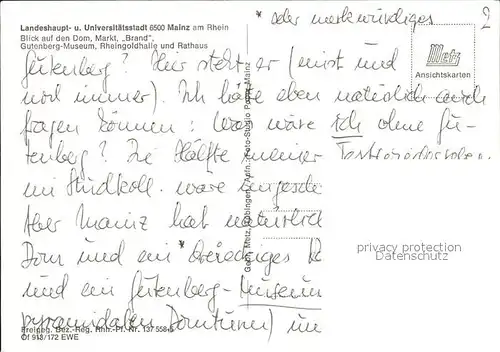 * oder merkwürdiges
2
Landeshaupt- u. Universitätsstadt 6500 Mainz am Rhein
Blick auf den Dom, Markt, „Brand",
Gutenberg-Museum, Rheingoldhalle und Rathaus
Metz
Ansichtskarten
Gutenberg? Hier steht er (meist und
noch immer). Ich hätte eben natürlich auch
fragen können: Was wäre ich ohne Gu-
tenberg? Die Hälfte meiner
im
wäre
Aber Mainz hat natürlich
Dom und ein * dreieckiges
und ein Gutenberg-Museum
pyramidalen
Gebr. Metz, Tübingen/Aufn.: Foto-Studio Popp, Mainz
privacy protection
Datenschutz
Freigeg. Bez.-Reg. Rhh.-Pf. Nr. 137 558-5
Of 913/172 EWE